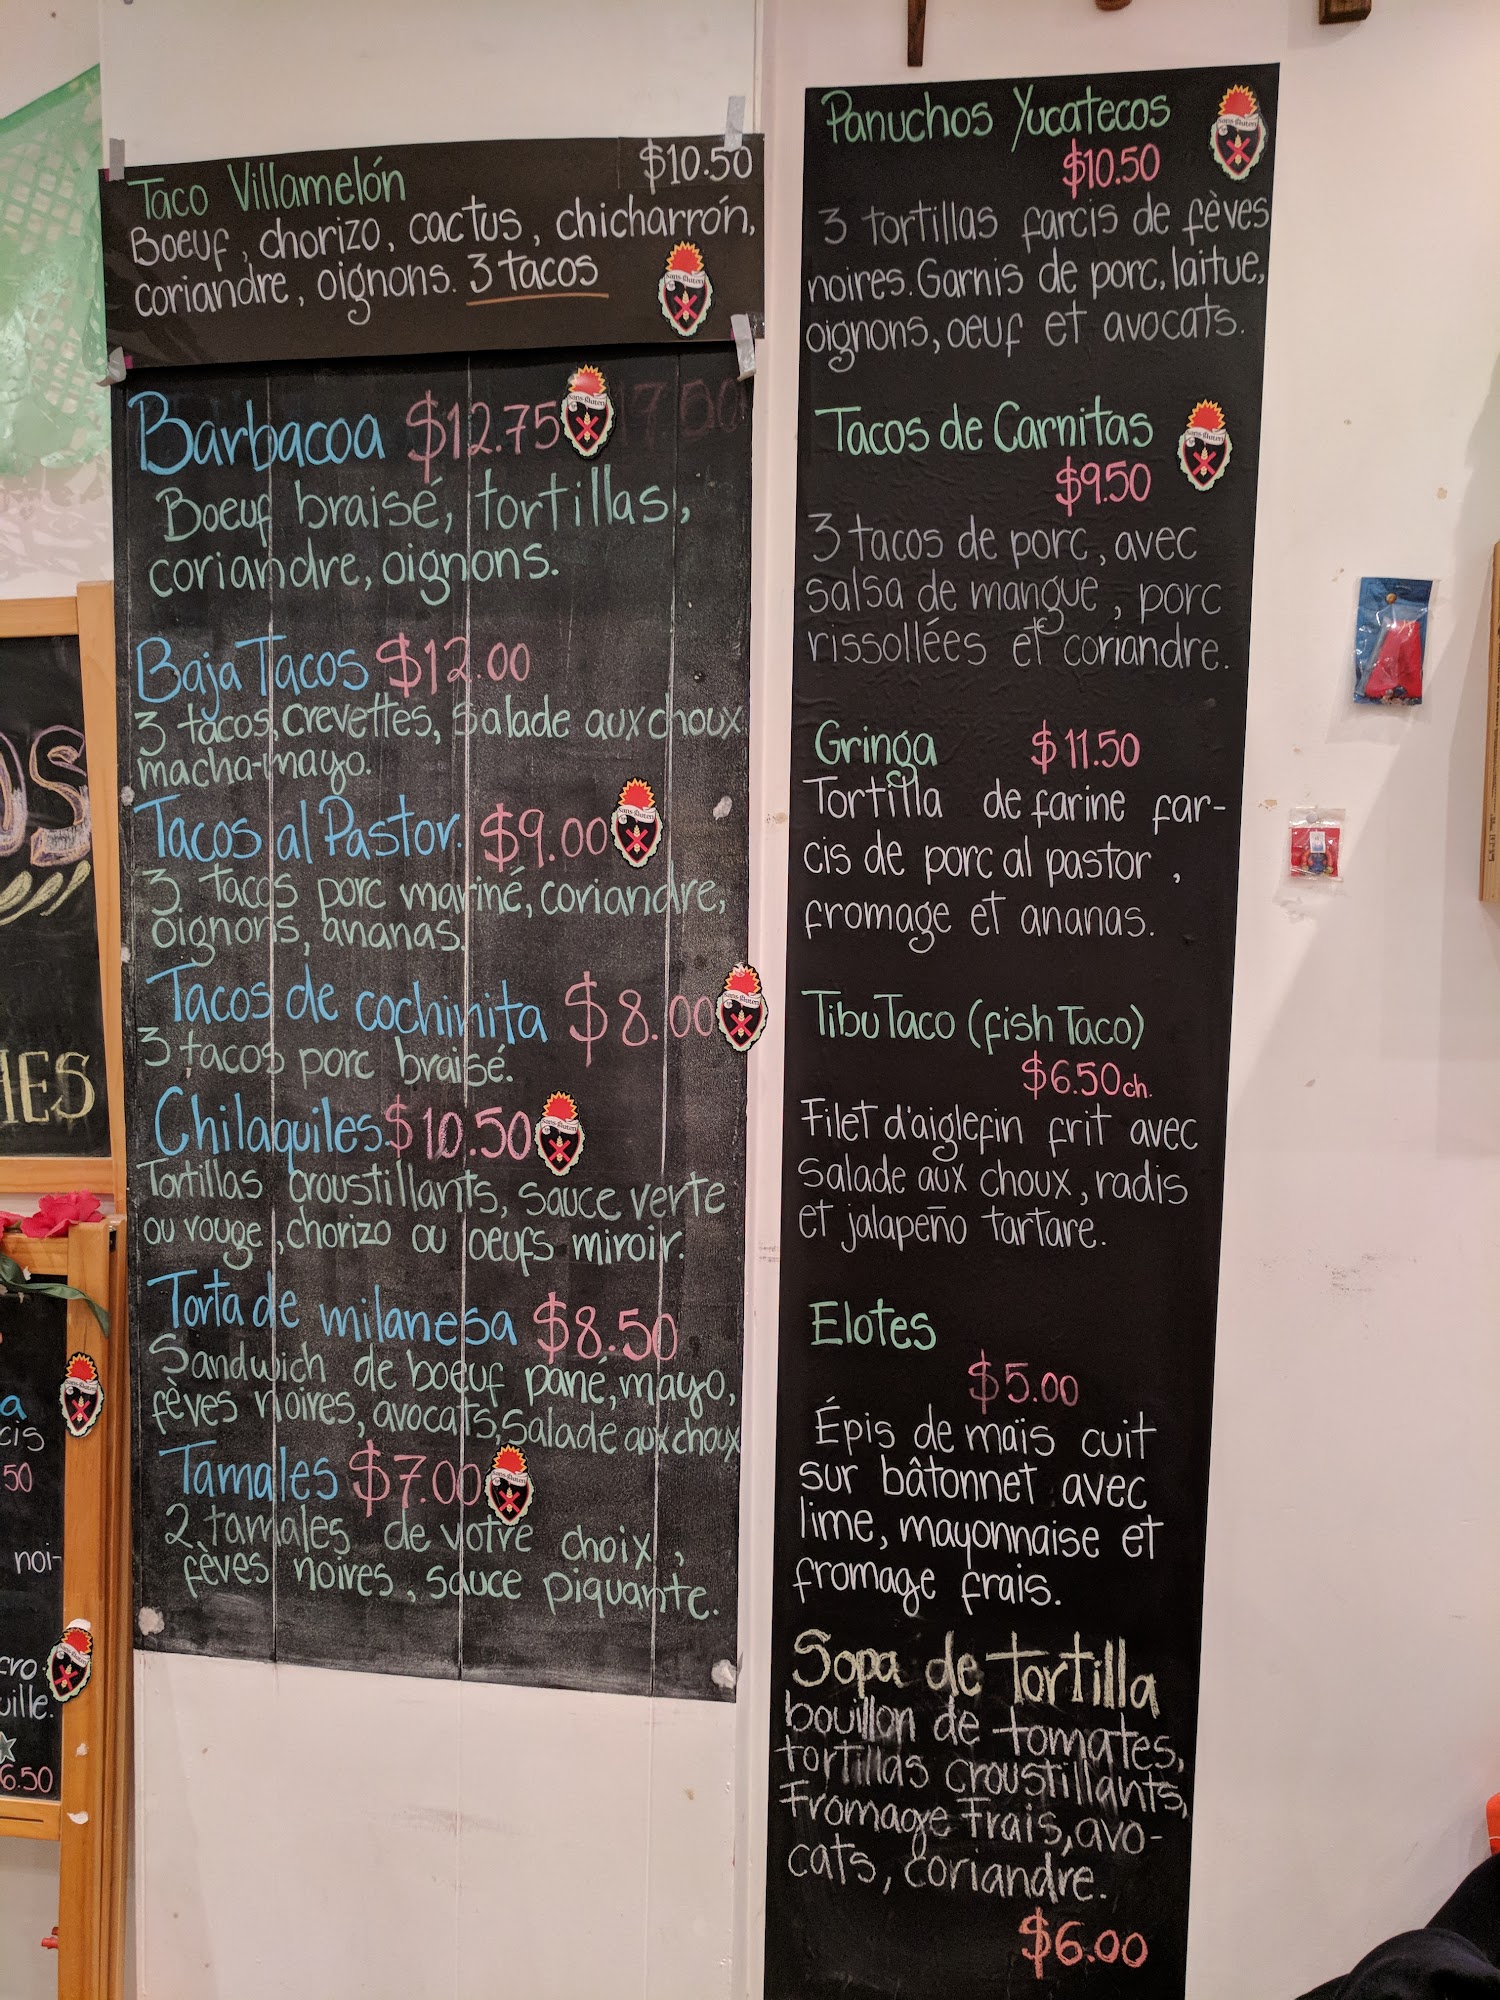 Taco Villamelón $10.50
Boeuf, chorizo, cactus, chicharrón,
coriandre, oignons. 3 tacos
Sans Gluten
Barbacoa $12.75
Sans Gluten
17.50
Boeuf braisé, tortillas,
coriandre, oignons.
Baja Tacos $12.00
3 tacos, crevettes, salade aux choux
macha-mayo.
Tacos al Pastor. $9.00
Sans Gluten
3 tacos porc mariné, coriandre,
oignons, ananas.
Tacos de cochinita $8.00
Sans Gluten
3 tacos porc braisé.
Chilaquiles $10.50
Sans Gluten
Tortillas croustillants, sauce verte
ou rouge, chorizo ou oeufs miroir.
Torta de milanesa $8.50
Sandwich de boeuf pané, mayo,
fèves noires, avocats, salade aux choux
Tamales $7.00
Sans Gluten
2 tamales de votre choix,
fèves noires, sauce piquante.
Panuchos Yucatecos
Sans Gluten
$10.50
3 tortillas farcis de fèves
noires. Garnis de porc, laitue,
oignons, oeuf et avocats.
Tacos de Carnitas
Sans Gluten
$9.50
3 tacos de porc, avec
salsa de mangue, porc
rissollées et coriandre.
Gringa $11.50
Tortilla de farine far-
cis de porc al pastor,
fromage et ananas.
Tibu Taco (fish Taco)
$6.50 ch.
Filet d'aiglefin frit avec
salade aux choux, radis
et jalapeño tartare.
Elotes
$5.00
Épis de maïs cuit
sur bâtonnet avec
lime, mayonnaise et
fromage frais.
Sopa de tortilla
bouillon de tomates,
tortillas croustillants,
Fromage Frais, avo-
cats, coriandre.
$6.00
OS
IES
a
cis
50
noi-
cro
uille.
6.50